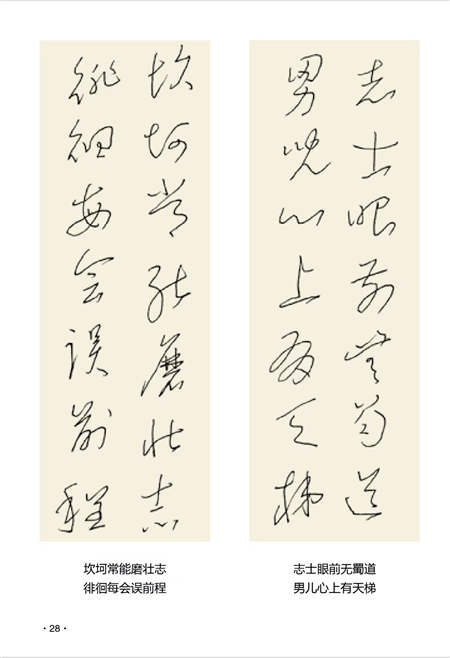 坎坷常能磨壮志
徘徊每会误前程
志士眼前無蜀道
男兒心上有天梯
坎坷常能磨壮志
徘徊每会误前程
志士眼前无蜀道
男儿心上有天梯
·28·